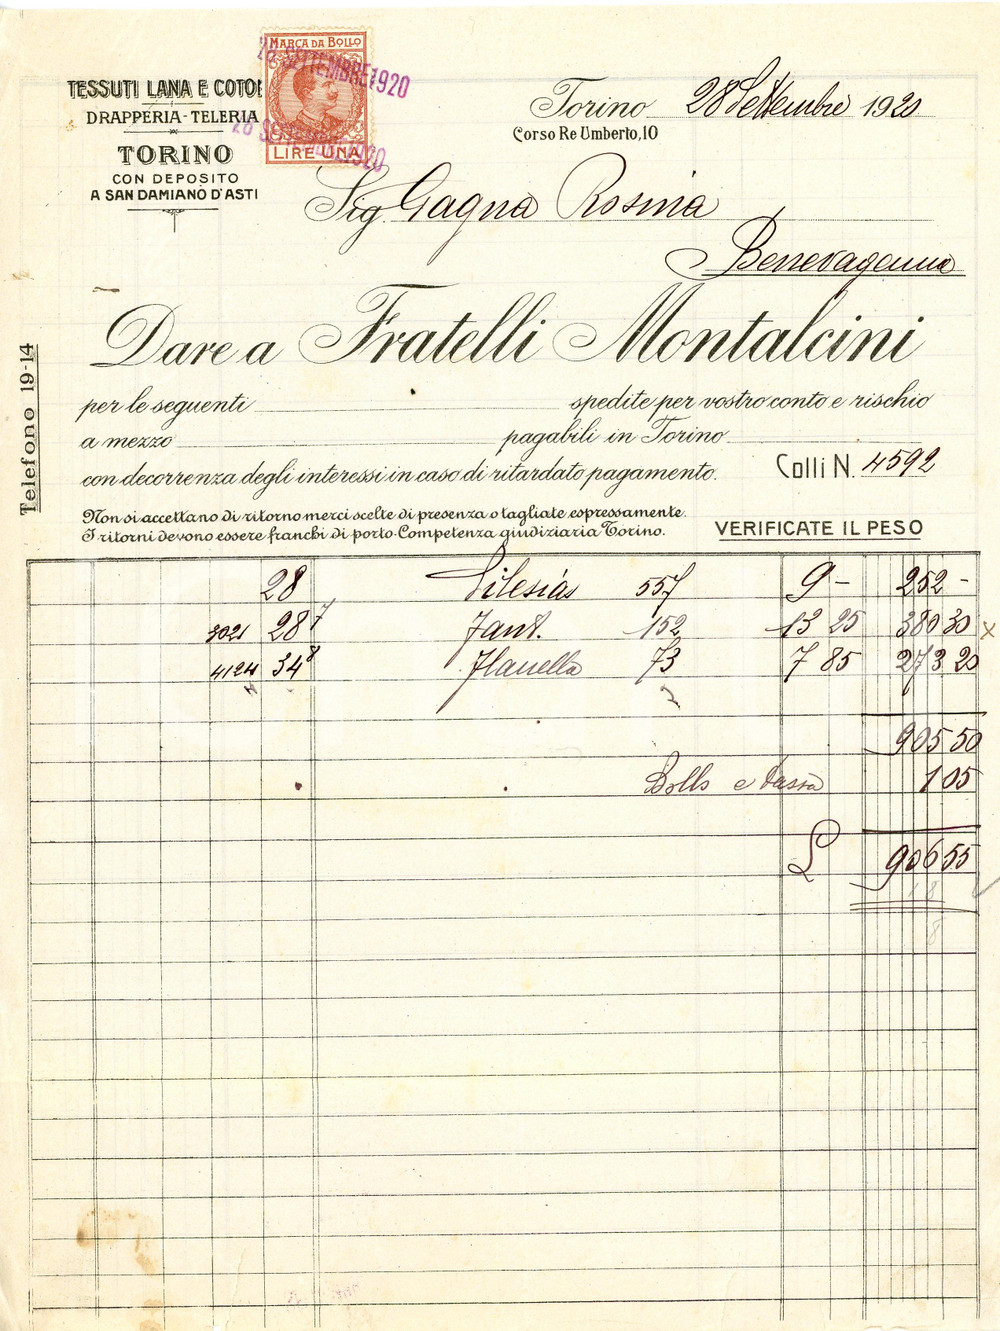 TESSUTI LANA E COTO
DRAPPERIA - TELERIA
TORINO
CON DEPOSITO
A SAN DAMIANO D'ASTI
MARCA DA BOLLO
LIRE UNA
28 SETTEMBRE 1920
28 SETTEMBRE 1920
Torino 28 Settembre 1920
Corso Re Umberto, 10
Sig. Gagna Rosina
Benevagenna
Dare a Fratelli Montalcini
Telefono 19-14
per le seguenti spedite per vostro conto e rischio
a mezzo pagabili in Torino
con decorrenza degli interessi in caso di ritardato pagamento.
Colli N. 4592
Non si accettano di ritorno merci scelte di presenza o tagliate espressamente.
I ritorni devono essere franchi di porto - Competenza giudiziaria Torino.
VERIFICATE IL PESO
28 Silesias 557 9 - 252 -
3021 28 7 Fant. 152 13 25 380 30 x
4124 34 8 Flanella 73 7 85 273 20
905 50
Bollo e tassa 1 05
L 906 55